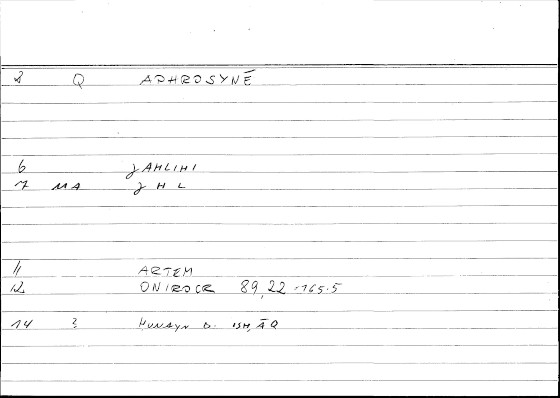 8 Q APHROSYNĒ
6 JAHLIHI
7 MA J H L
11 ARTEM
12 ONIROCR 89,22 - 165.5
14 3 HUNAYN B. ISḤĀQ